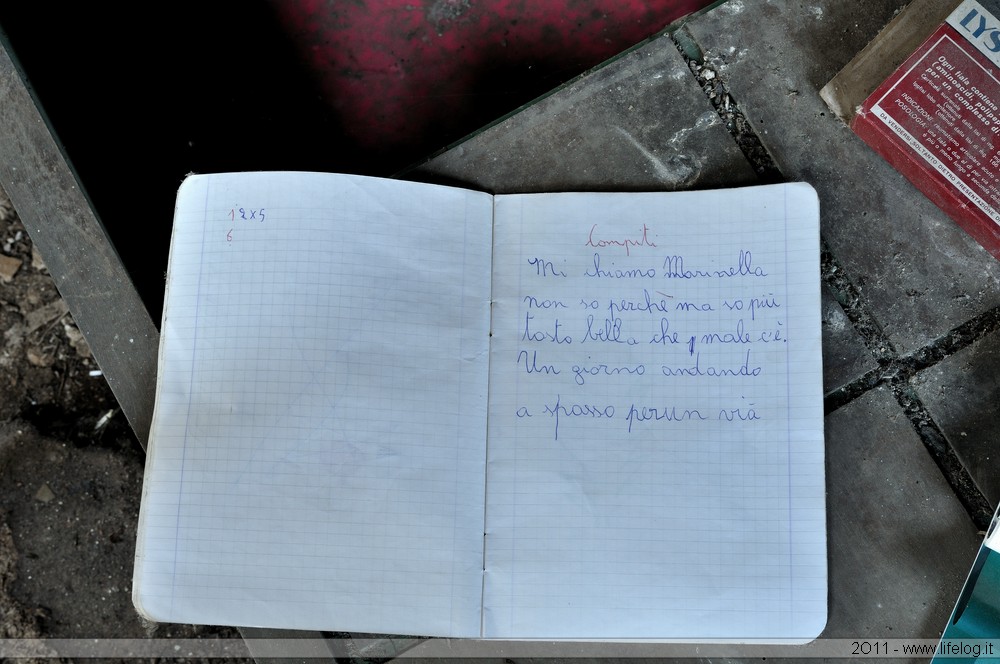 12x5
6
Compiti
Mi chiamo Marinella
non so perchè ma so più
tosto bella che male c'è.
Un giorno andando
a spasso perun vià
LYS
Ogni fiala contiene
(aminoacidi, polipep
per un complesso di
INDICAZIONE
POSOLOGIA: una fiala
DA VENDERSI SOLTANTO DIETRO PRESENTAZIONE D
2011 - www.lifelog.it